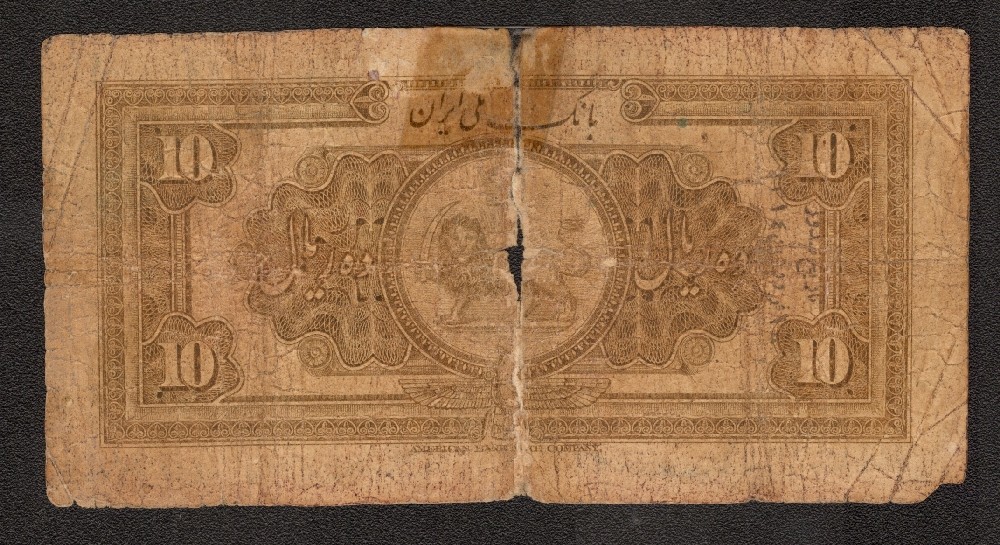 بانک ملی ایران
10 10
ده ریال ده ریال
10 10
AMERICAN BANK NOTE COMPANY